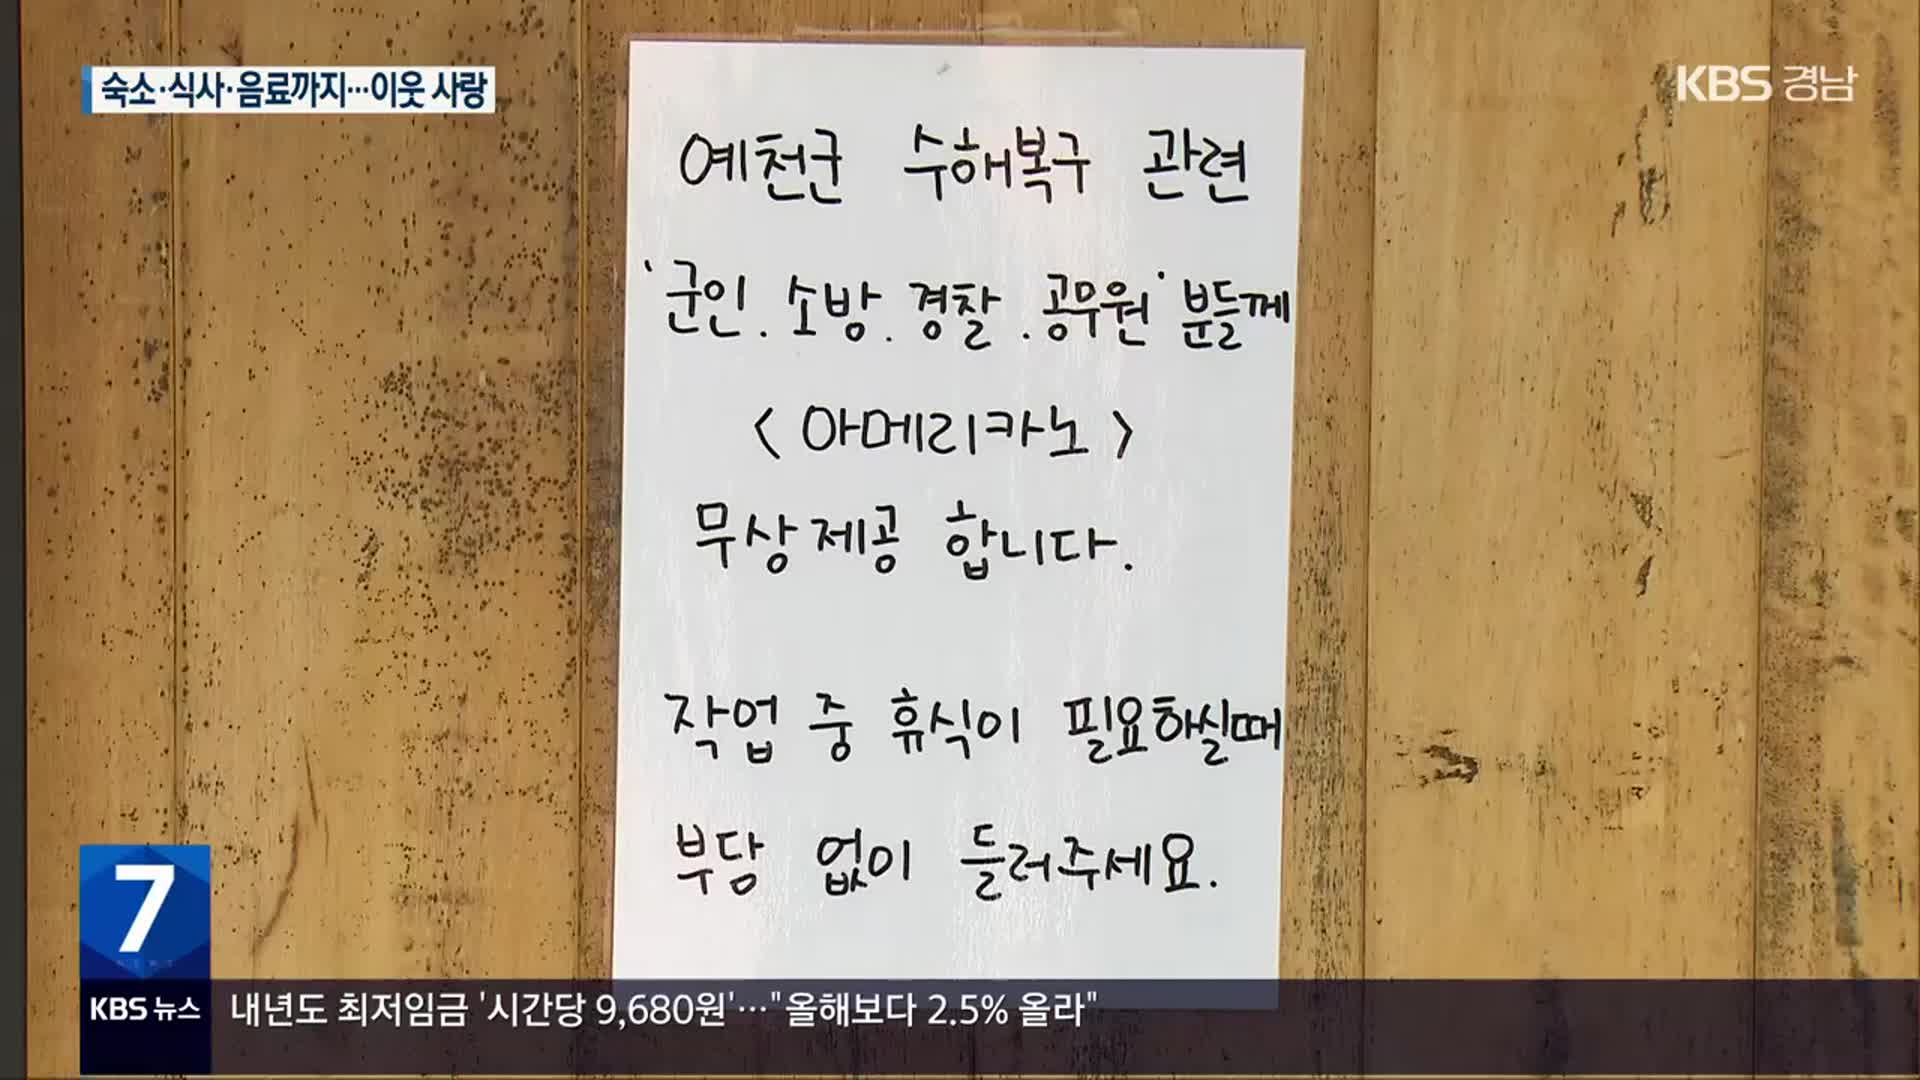 숙소·식사·음료까지…이웃 사랑
KBS 경남
예천군 수해복구 관련
'군인. 소방. 경찰. 공무원' 분들께
<아메리카노>
무상제공 합니다.
작업 중 휴식이 필요하실때
부담 없이 들러주세요.
7
KBS 뉴스
내년도 최저임금 '시간당 9,680원'…"올해보다 2.5% 올라"